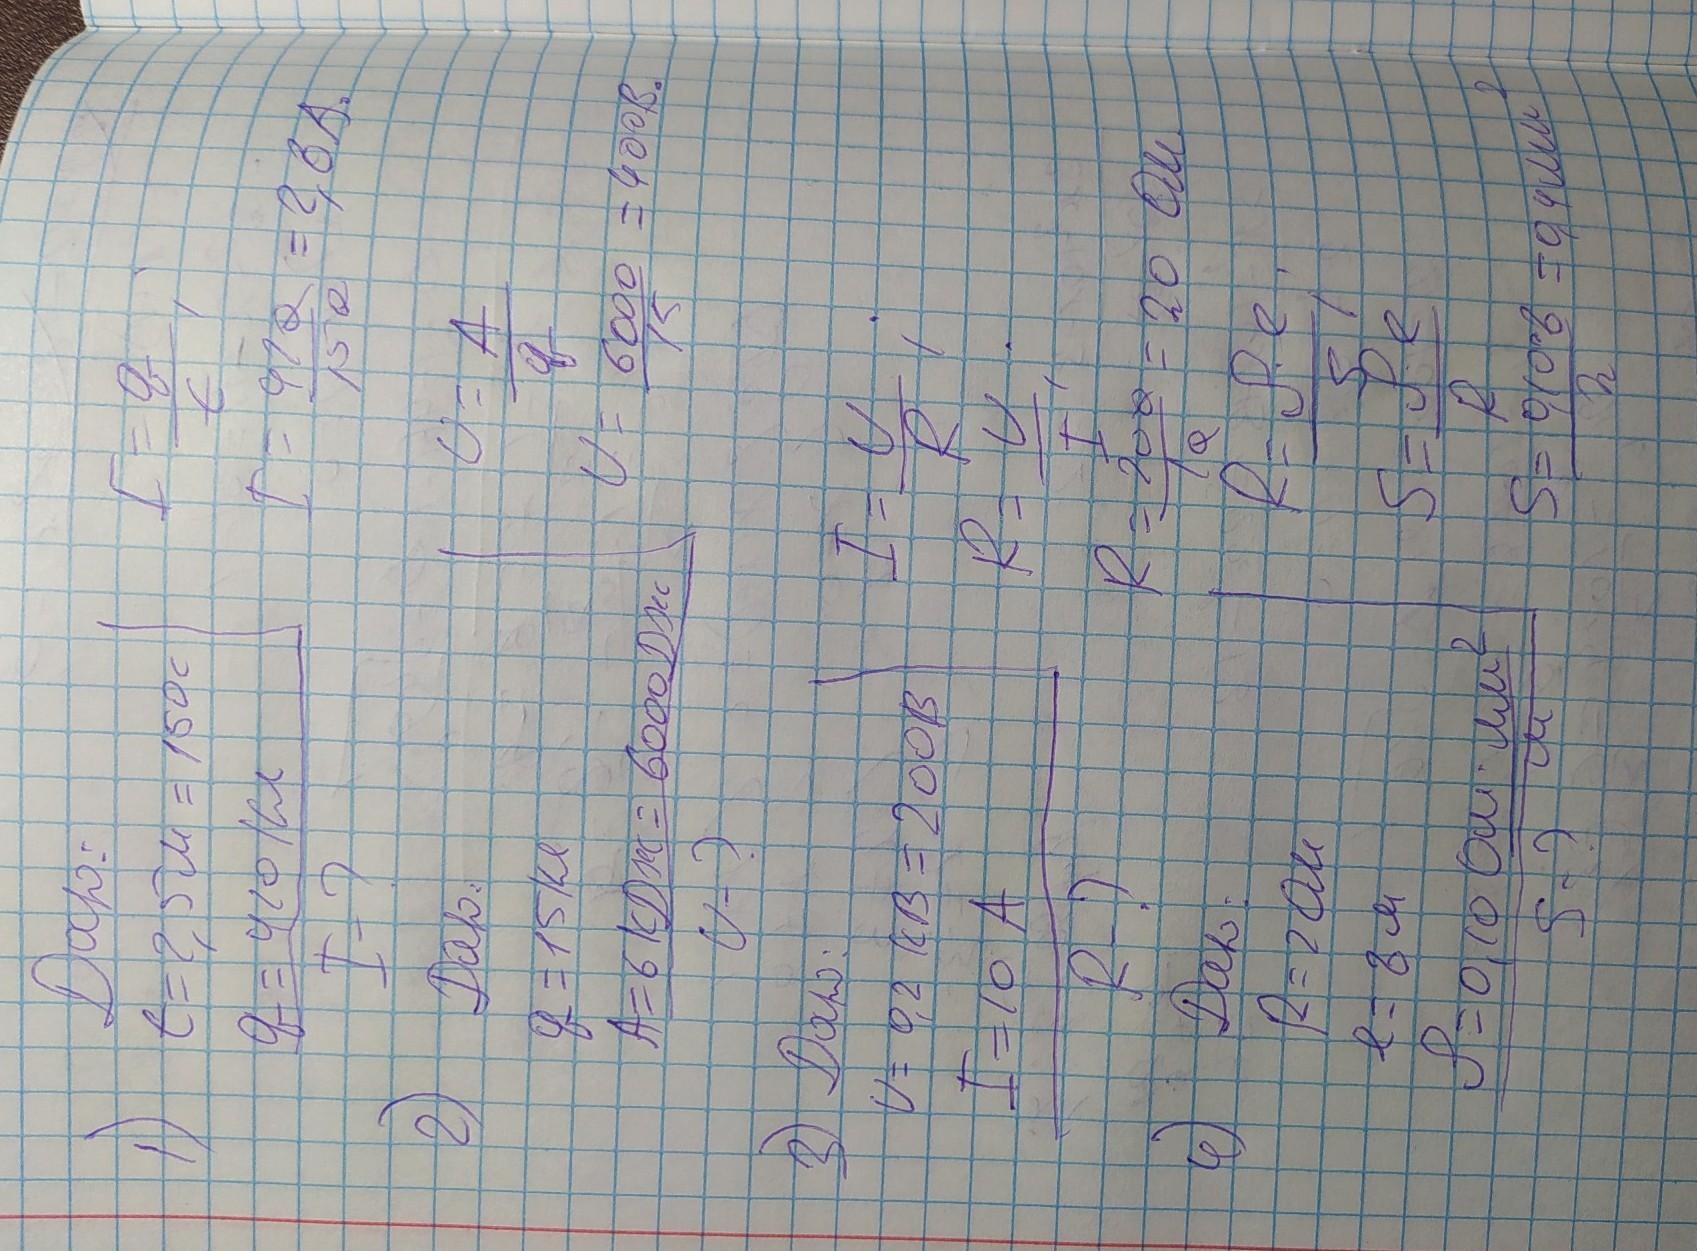 1) Дано:
t = 2,5 м = 150 с
q = 420 Кл
I - ?
I = q/t,
I = 420/150 = 2,8 А.
2) Дано:
q = 15 Кл
A = 6 кДж = 6000 Дж
U - ?
U = A/q
U = 6000/15 = 400 В.
3) Дано:
U = 0,2 кВ = 200 В
I = 10 А
R - ?
I = U/R,
R = U/I,
R = 200/10 = 20 Ом
4) Дано:
R = 2 Ом
ℓ = 8 м
ρ = 0,10 Ом·мм²/м
S - ?
R = ρ·ℓ/S,
S = ρ·ℓ/R
S = 0,10·8/2 = 0,4 мм²